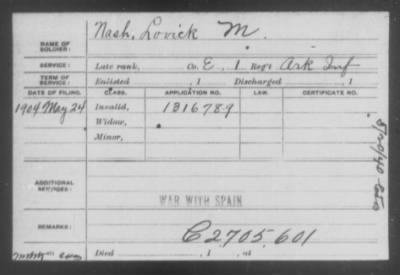 NAME OF SOLDIER: Nash, Lovick M.
SERVICE: Late rank, Co. E, 1 Reg't Ark Inf
TERM OF SERVICE: Enlisted , 1 Discharged , 1
DATE OF FILING. CLASS. APPLICATION NO. LAW. CERTIFICATE NO.
1904 May 24 Invalid, 1316789
Widow,
Minor,
ADDITIONAL SERVICES:
WAR WITH SPAIN
REMARKS: C2,705,601
Died , 1 , at